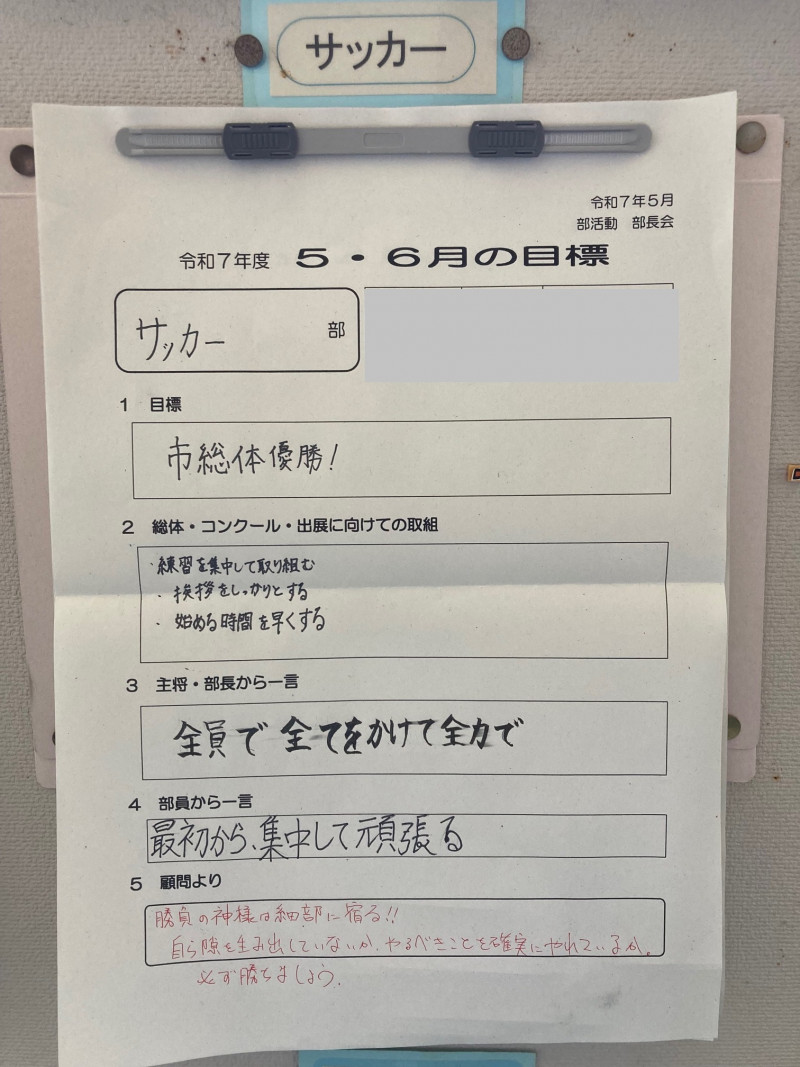 サッカー
令和7年5月
部活動 部長会
令和7年度 5・6月の目標
サッカー 部
1 目標
市総体優勝!
2 総体・コンクール・出展に向けての取組
・練習を集中して取り組む
・挨拶をしっかりとする
・始める時間を早くする
3 主将・部長から一言
全員で全てをかけて全力で
4 部員から一言
最初から、集中して頑張る
5 顧問より
勝負の神様は細部に宿る!!
自ら隙を生み出していないか、やるべきことを確実にやれているか。
必ず勝ちましょう。